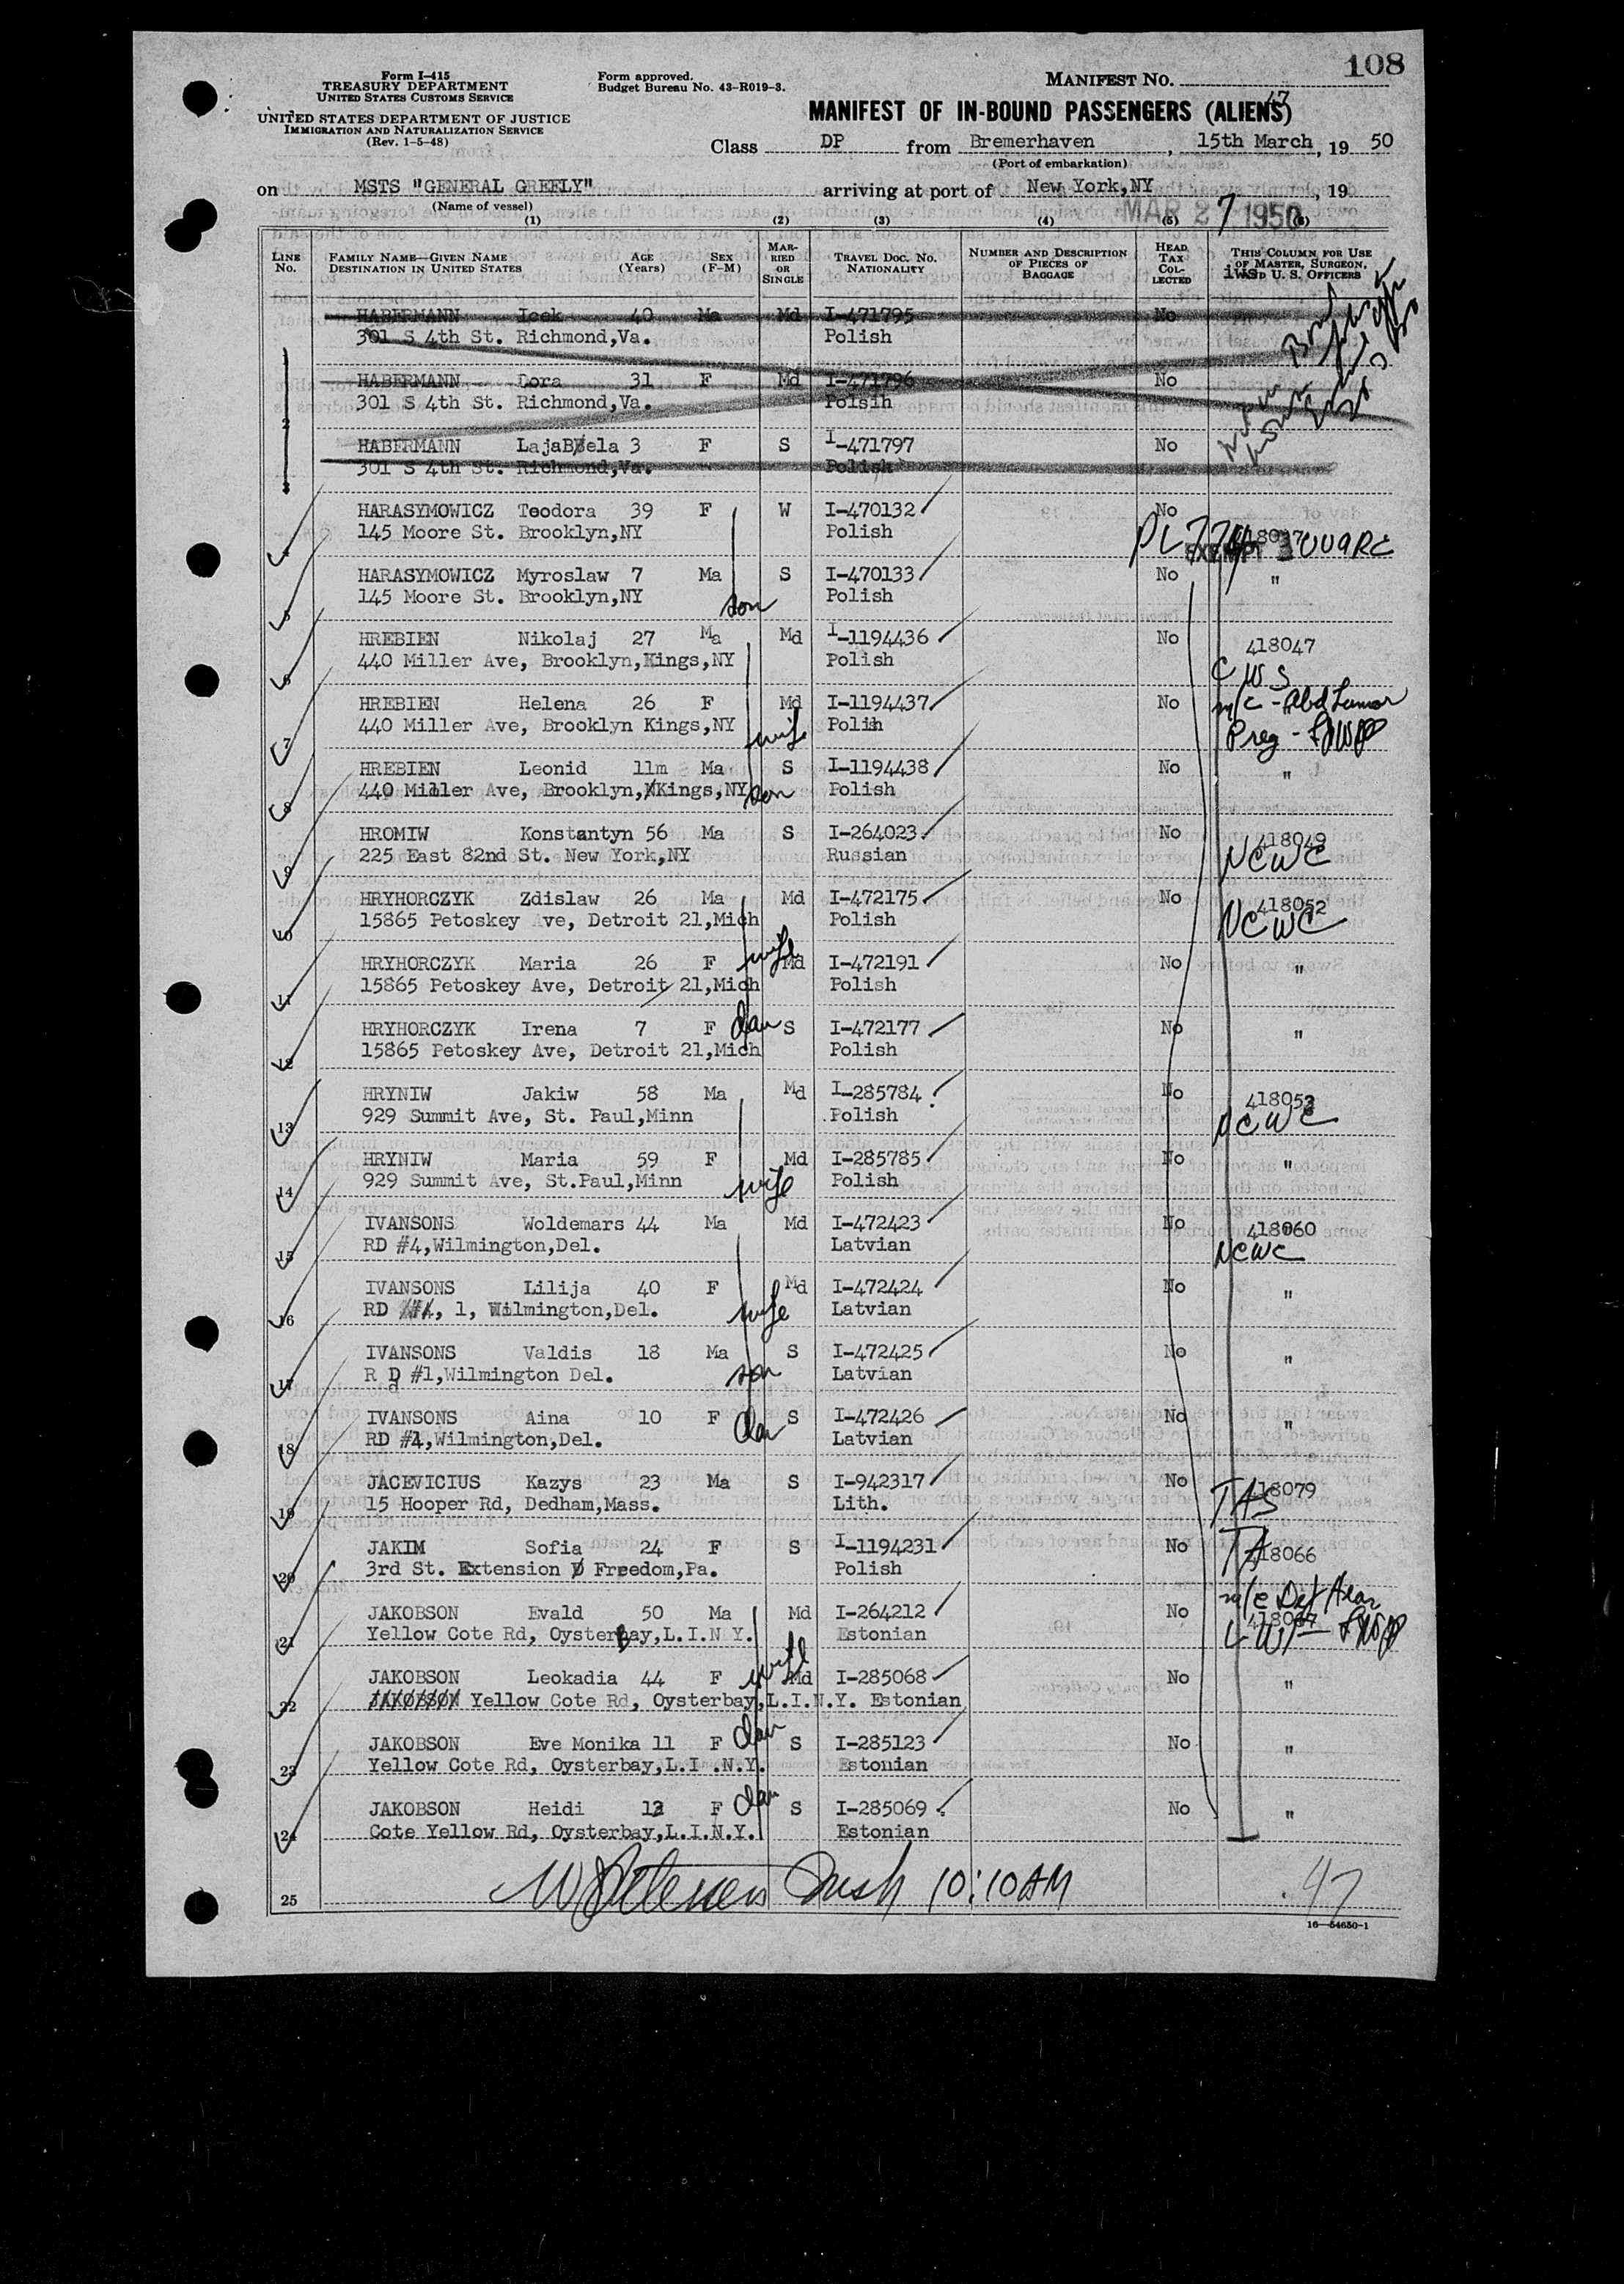 108
Form I-415
TREASURY DEPARTMENT
UNITED STATES CUSTOMS SERVICE
UNITED STATES DEPARTMENT OF JUSTICE
IMMIGRATION AND NATURALIZATION SERVICE
(Rev. 1-5-48)
Form approved.
Budget Bureau No. 43-R019-3.
MANIFEST NO.
47
MANIFEST OF IN-BOUND PASSENGERS (ALIENS)
Class DP from Bremerhaven, 15th March, 19 50
(Port of embarkation)
on MSTS "GENERAL GREELY" arriving at port of New York,NY, 19
(Name of vessel)
MAR 27 1950
(1) (2) (3) (4) (5) (6)
LINE No. FAMILY NAME—GIVEN NAME DESTINATION IN UNITED STATES AGE (Years) SEX (F-M) MARRIED OR SINGLE TRAVEL DOC. NO. NATIONALITY NUMBER AND DESCRIPTION OF PIECES OF BAGGAGE HEAD TAX COLLECTED THIS COLUMN FOR USE OF MASTER, SURGEON, AND U. S. OFFICERS
HABERMANN Icek 40 Ma Md I-471795 No
301 S 4th St. Richmond,Va. Polish
HABERMANN Dora 31 F Md I-471796 No
2 301 S 4th St. Richmond,Va. Polsih
HABERMANN LajaBela 3 F S I-471797 No
3 301 S 4th St. Richmond,Va. Polish
HARASYMOWICZ Teodora 39 F W I-470132 No
4 145 Moore St. Brooklyn,NY Polish PL 774 EXEMPT
HARASYMOWICZ Myroslaw 7 Ma S I-470133 No "
5 145 Moore St. Brooklyn,NY son Polish
HREBIEN Nikolaj 27 Ma Md I-1194436 No 418047
6 440 Miller Ave, Brooklyn,Kings,NY Polish CWS
HREBIEN Helena 26 F Md I-1194437 No
7 440 Miller Ave, Brooklyn Kings,NY wife Polish Preg -
HREBIEN Leonid 11m Ma S I-1194438 No "
8 440 Miller Ave, Brooklyn,Kings,NY son Polish
HROMIW Konstantyn 56 Ma S I-264023 No 418049
9 225 East 82nd St. New York,NY Russian NCWC
HRYHORCZYK Zdislaw 26 Ma Md I-472175 No 418052
10 15865 Petoskey Ave, Detroit 21,Mich Polish NCWC
HRYHORCZYK Maria 26 F wife Md I-472191 No "
11 15865 Petoskey Ave, Detroit 21,Mich Polish
HRYHORCZYK Irena 7 F dau S I-472177 No "
12 15865 Petoskey Ave, Detroit 21,Mich Polish
HRYNIW Jakiw 58 Ma Md I-285784 No 418053
13 929 Summit Ave, St. Paul,Minn Polish NCWC
HRYNIW Maria 59 F Md I-285785 No "
14 929 Summit Ave, St.Paul,Minn wife Polish
IVANSONS Woldemars 44 Ma Md I-472423 No 418060
15 RD #4,Wilmington,Del. Latvian NCWC
IVANSONS Lilija 40 F Md I-472424 No "
16 RD , 1, Wilmington,Del. wife Latvian
IVANSONS Valdis 18 Ma S I-472425 No "
17 R D #1,Wilmington Del. son Latvian
IVANSONS Aina 10 F dau S I-472426 No "
18 RD #1,Wilmington,Del. Latvian
JACEVICIUS Kazys 23 Ma S I-942317 No 418079
19 15 Hooper Rd, Dedham,Mass. Lith. TAS
JAKIM Sofia 24 F S I-1194231 No TA 418066
20 3rd St. Extension Freedom,Pa. Polish
JAKOBSON Evald 50 Ma Md I-264212 No 418067
21 Yellow Cote Rd, OysterBay,L.I.N Y. Estonian
JAKOBSON Leokadia 44 F wife Md I-285068 No "
22 JAKOBSON Yellow Cote Rd, Oysterbay,L.I.N.Y. Estonian
JAKOBSON Eve Monika 11 F dau S I-285123 No "
23 Yellow Cote Rd, Oysterbay,L.I .N.Y. Estonian
JAKOBSON Heidi 12 F dau S I-285069 No "
24 Cote Yellow Rd, Oysterbay,L.I.N.Y. Estonian
25 10:10 AM 47
16—54650-1